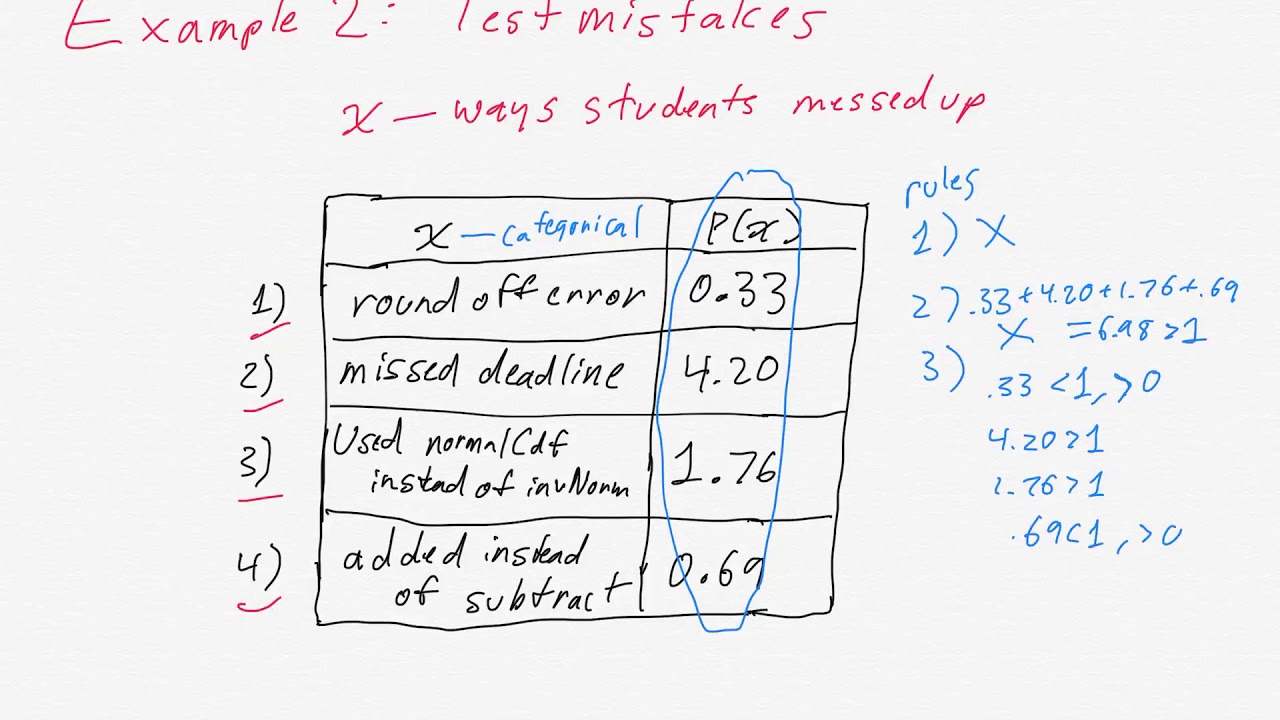 Example 2: Test mistakes
x — ways students messed up
x — categorical P(x)
1) round off error 0.33
2) missed deadline 4.20
3) Used normalCdf
instead of invNorm 1.76
4) added instead
of subtract 0.69
rules
1) X
2) .33+4.20+1.76+.69
X =6.98>1
3) .33 <1, >0
4.20>1
1.76>1
.69<1, >0